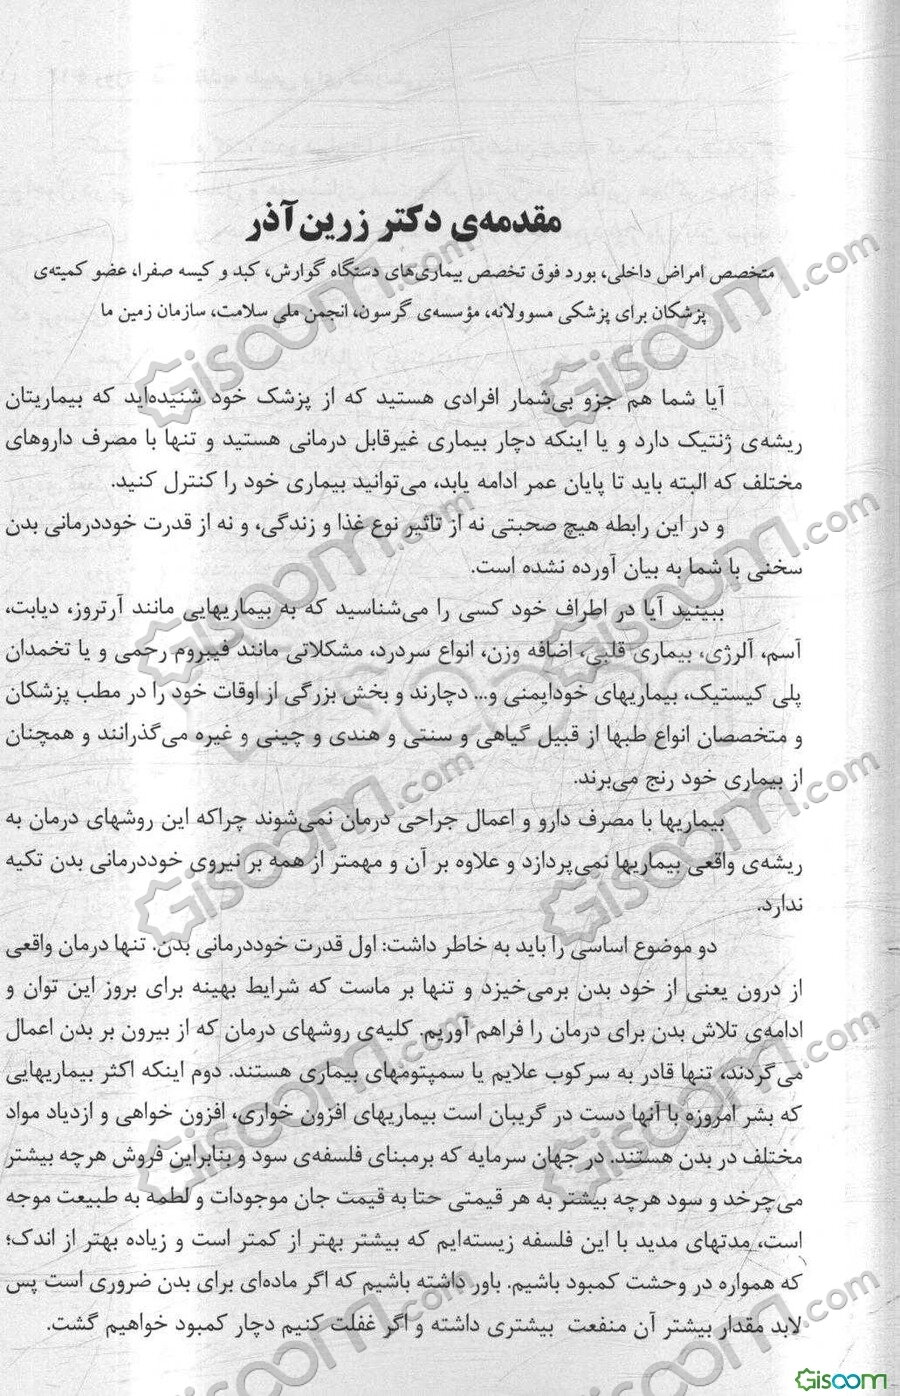 مقدمه‌ی دکتر زرین‌آذر
متخصص امراض داخلی، بورد فوق تخصص بیماری‌های دستگاه گوارش، کبد و کیسه صفرا، عضو کمیته‌ی
پزشکان برای پزشکی مسوولانه، مؤسسه‌ی گرسون، انجمن ملی سلامت، سازمان زمین ما
آیا شما هم جزو بی‌شمار افرادی هستید که از پزشک خود شنیده‌اید که بیماریتان
ریشه‌ی ژنتیک دارد و یا اینکه دچار بیماری غیرقابل درمانی هستید و تنها با مصرف داروهای
مختلف که البته باید تا پایان عمر ادامه یابد، می‌توانید بیماری خود را کنترل کنید.
و در این رابطه هیچ صحبتی نه از تاثیر نوع غذا و زندگی، و نه از قدرت خوددرمانی بدن
سخنی با شما به بیان آورده نشده است.
ببینید آیا در اطراف خود کسی را می‌شناسید که به بیماریهایی مانند آرتروز، دیابت،
آسم، آلرژی، بیماری قلبی، اضافه وزن، انواع سردرد، مشکلاتی مانند فیبروم رحمی و یا تخمدان
پلی کیستیک، بیماریهای خودایمنی و... دچارند و بخش بزرگی از اوقات خود را در مطب پزشکان
و متخصصان انواع طبها از قبیل گیاهی و سنتی و هندی و چینی و غیره می‌گذرانند و همچنان
از بیماری خود رنج می‌برند.
بیماریها با مصرف دارو و اعمال جراحی درمان نمی‌شوند چراکه این روشهای درمان به
ریشه‌ی واقعی بیماریها نمی‌پردازد و علاوه بر آن و مهمتر از همه بر نیروی خوددرمانی بدن تکیه
ندارد.
دو موضوع اساسی را باید به خاطر داشت: اول قدرت خوددرمانی بدن. تنها درمان واقعی
از درون یعنی از خود بدن برمی‌خیزد و تنها بر ماست که شرایط بهینه برای بروز این توان و
ادامه‌ی تلاش بدن برای درمان را فراهم آوریم. کلیه‌ی روشهای درمان که از بیرون بر بدن اعمال
می‌گردند، تنها قادر به سرکوب علایم یا سمپتومهای بیماری هستند. دوم اینکه اکثر بیماریهایی
که بشر امروزه با آنها دست در گریبان است بیماریهای افزون خواری، افزون خواهی و ازدیاد مواد
مختلف در بدن هستند. در جهان سرمایه که برمبنای فلسفه‌ی سود و بنابراین فروش هرچه بیشتر
می‌چرخد و سود هرچه بیشتر به هر قیمتی حتا به قیمت جان موجودات و لطمه به طبیعت موجه
است، مدتهای مدید با این فلسفه زیسته‌ایم که بیشتر بهتر از کمتر است و زیاده بهتر از اندک؛
که همواره در وحشت کمبود باشیم. باور داشته باشیم که اگر ماده‌ای برای بدن ضروری است پس
لابد مقدار بیشتر آن منفعت بیشتری داشته و اگر غفلت کنیم دچار کمبود خواهیم گشت.
Gisoom